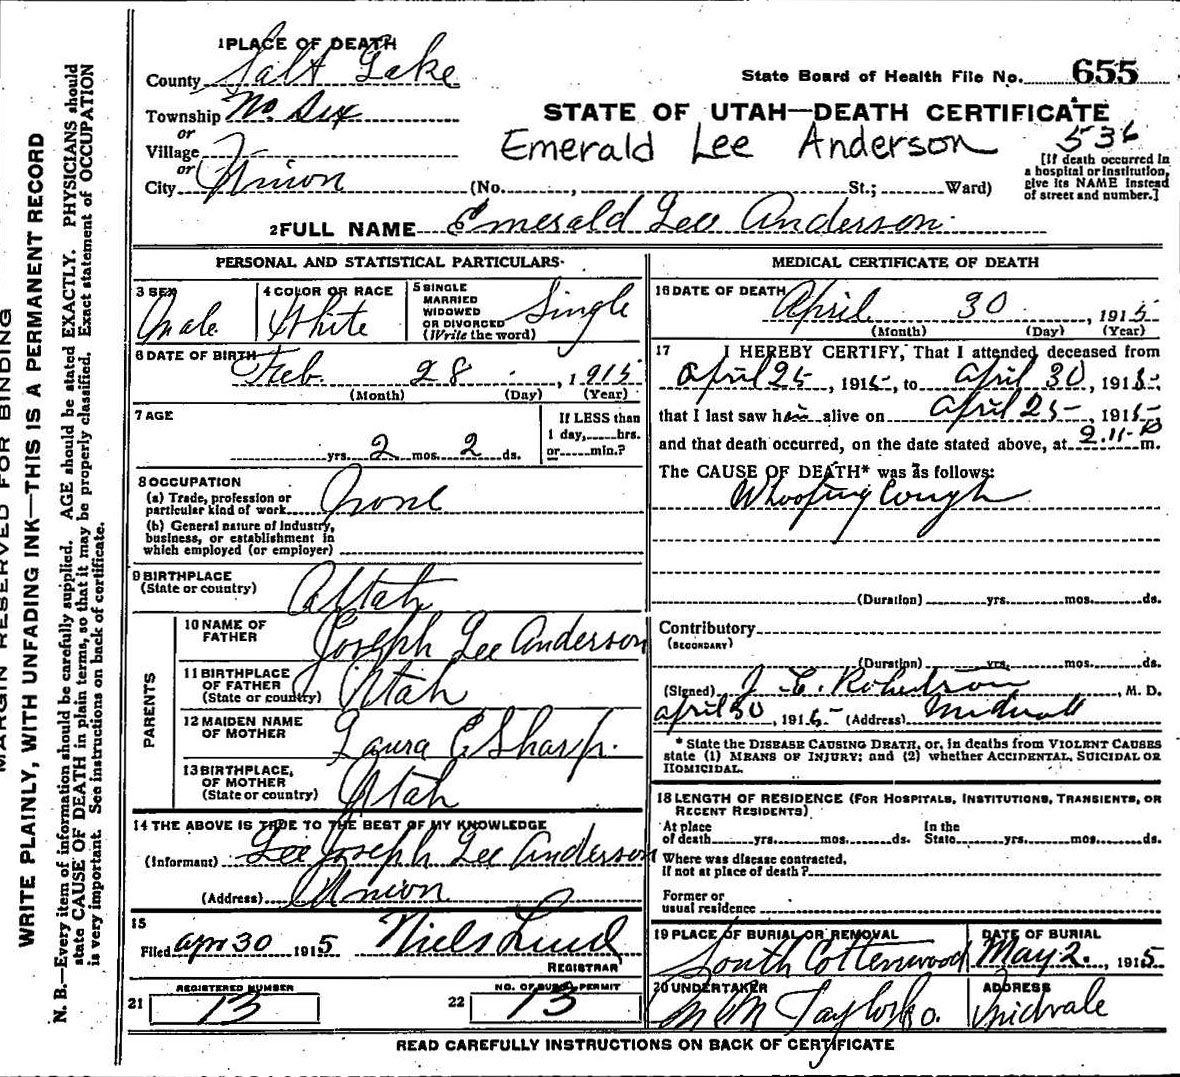 MARGIN RESERVED FOR BINDING
WRITE PLAINLY, WITH UNFADING INK—THIS IS A PERMANENT RECORD
N. B.—Every item of information should be carefully supplied. AGE should be stated EXACTLY. PHYSICIANS should
state CAUSE OF DEATH in plain terms, so that it may be properly classified. Exact statement of OCCUPATION
is very important. See instructions on back of certificate.
1 PLACE OF DEATH
County Salt Lake
State Board of Health File No. 655
Township No. Six
STATE OF UTAH—DEATH CERTIFICATE
or
Village
Emerald Lee Anderson 536
or
City Union (No. , St.; Ward)
[If death occurred in
a hospital or institution,
give its NAME instead
of street and number.]
2 FULL NAME Emerald Lee Anderson
PERSONAL AND STATISTICAL PARTICULARS
3 SEX
Male
4 COLOR OR RACE
White
5 SINGLE
MARRIED
WIDOWED
OR DIVORCED
(Write the word)
Single
6 DATE OF BIRTH
Feb. 28 , 1915
(Month) (Day) (Year)
7 AGE
yrs. 2 mos. 2 ds.
If LESS than
1 day, hrs.
or min.?
8 OCCUPATION
(a) Trade, profession or
particular kind of work None
(b) General nature of industry,
business, or establishment in
which employed (or employer)
9 BIRTHPLACE
(State or country) Utah
PARENTS
10 NAME OF
FATHER Joseph Lee Anderson
11 BIRTHPLACE
OF FATHER
(State or country) Utah
12 MAIDEN NAME
OF MOTHER Laura E Sharp.
13 BIRTHPLACE,
OF MOTHER
(State or country) Utah
14 THE ABOVE IS TRUE TO THE BEST OF MY KNOWLEDGE
(Informant) Lee Joseph Lee Anderson
(Address) Union
15
Filed Apr 30 1915 Niels Lind
REGISTRAR
21 REGISTERED NUMBER 13
22 NO. OF BURIAL PERMIT 13
MEDICAL CERTIFICATE OF DEATH
16 DATE OF DEATH
April 30 , 1915
(Month) (Day) (Year)
17 I HEREBY CERTIFY, That I attended deceased from
April 25 , 1915, to April 30, 1915
that I last saw him alive on April 25, 1915,
and that death occurred, on the date stated above, at m.
The CAUSE OF DEATH* was as follows:
Whooping Cough
(Duration) yrs. mos. ds.
Contributory
(SECONDARY)
(Duration) yrs. mos. ds.
(Signed) J. C. Robertson , M. D.
April 30, 1915 (Address) Midvale
* State the DISEASE CAUSING DEATH, or, in deaths from VIOLENT CAUSES
state (1) MEANS OF INJURY; and (2) whether ACCIDENTAL, SUICIDAL OR
HOMICIDAL.
18 LENGTH OF RESIDENCE (FOR HOSPITALS, INSTITUTIONS, TRANSIENTS, OR
RECENT RESIDENTS)
At place In the
of death yrs. mos. ds. State yrs. mos. ds.
Where was disease contracted,
if not at place of death?
Former or
usual residence
19 PLACE OF BURIAL OR REMOVAL
South Cottonwood
DATE OF BURIAL
May 2. , 1915
20 UNDERTAKER
Taylor Co.
ADDRESS
Midvale
READ CAREFULLY INSTRUCTIONS ON BACK OF CERTIFICATE